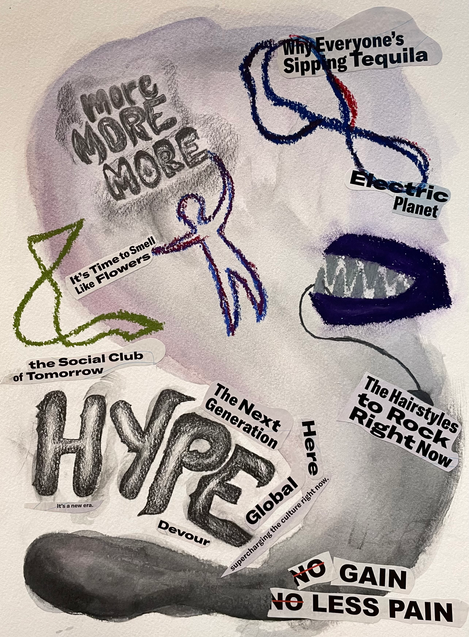 Why Everyone's
Sipping Tequila
more
MORE
MORE
Electric
Planet
It's Time to Smell
Like Flowers
the Social Club
of Tomorrow
The Hairstyles
to Rock
Right Now
HYPE
The Next
Generation
Here
Global
supercharging the culture right now.
It's a new era.
Devour
NO GAIN
NO LESS PAIN